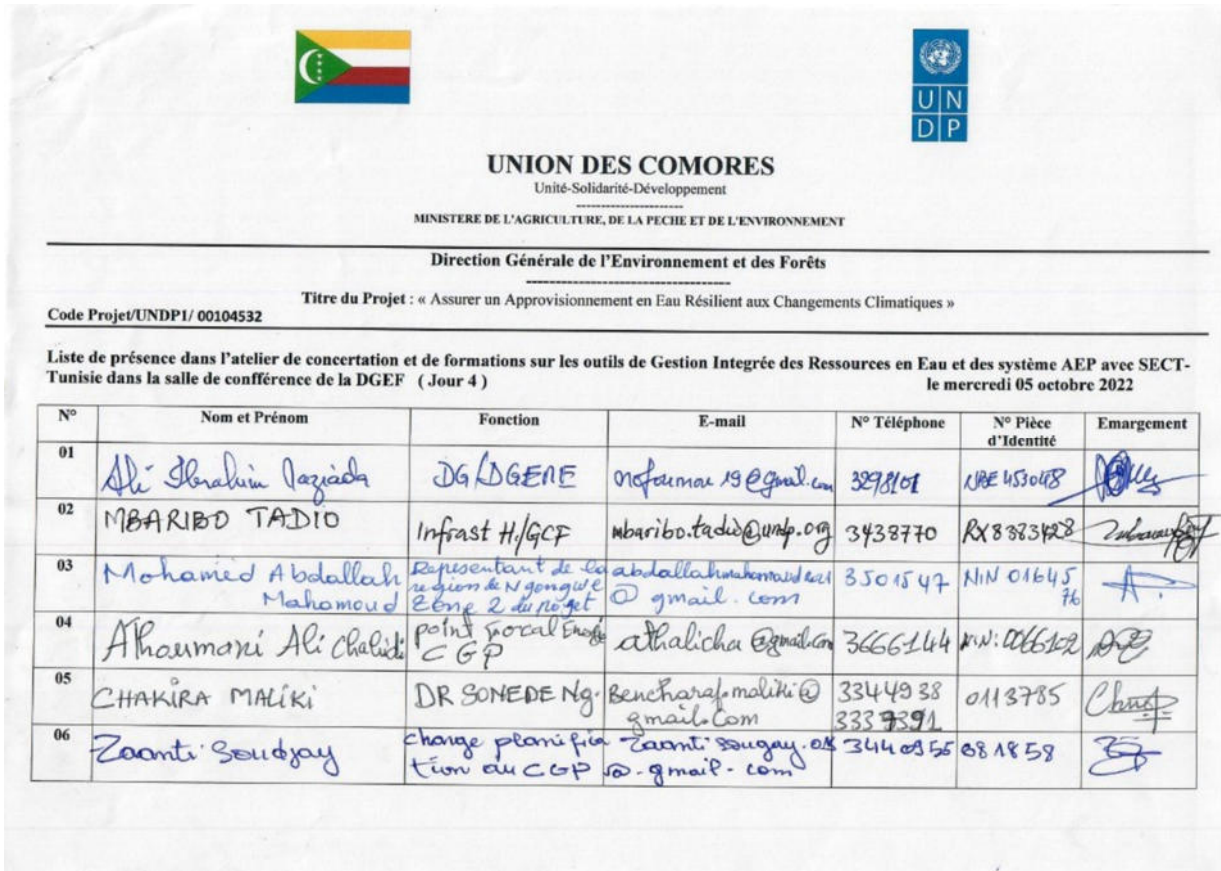 UN
DP
UNION DES COMORES
Unité-Solidarité-Développement
MINISTERE DE L'AGRICULTURE, DE LA PECHE ET DE L'ENVIRONNEMENT
Direction Générale de l'Environnement et des Forêts
Titre du Projet : « Assurer un Approvisionnement en Eau Résilient aux Changements Climatiques »
Code Projet/UNDP1/ 00104532
Liste de présence dans l'atelier de concertation et de formations sur les outils de Gestion Integrée des Ressources en Eau et des système AEP avec SECT-
Tunisie dans la salle de confférence de la DGEF ( Jour 4 ) le mercredi 05 octobre 2022
N° Nom et Prénom Fonction E-mail N° Téléphone N° Pièce d'Identité Emargement
01 Ali Ibrahim DG/DGEME @gmail.com 3298101
02 MBARIBO TADIO Infrast H./GCF mbaribo.tadio@undp.org 3438770 RX8383428
03 Mohamed Abdallah Representant de la
Mahamoud region de Ngongwe @ gmail.com 3501547 NIN 01645
Zone 2 du projet 76
04 Athoumani Ali point Focal athalicha@gmail.com 3666144
CGP
05 CHAKIRA MALIKI DR SONEDE Ng. Bencharaf.maliki@ 3344938 0113785
gmail.com
06 Zaanti Soudjay charge planifica 081858
tion au CGP @-gmail-com